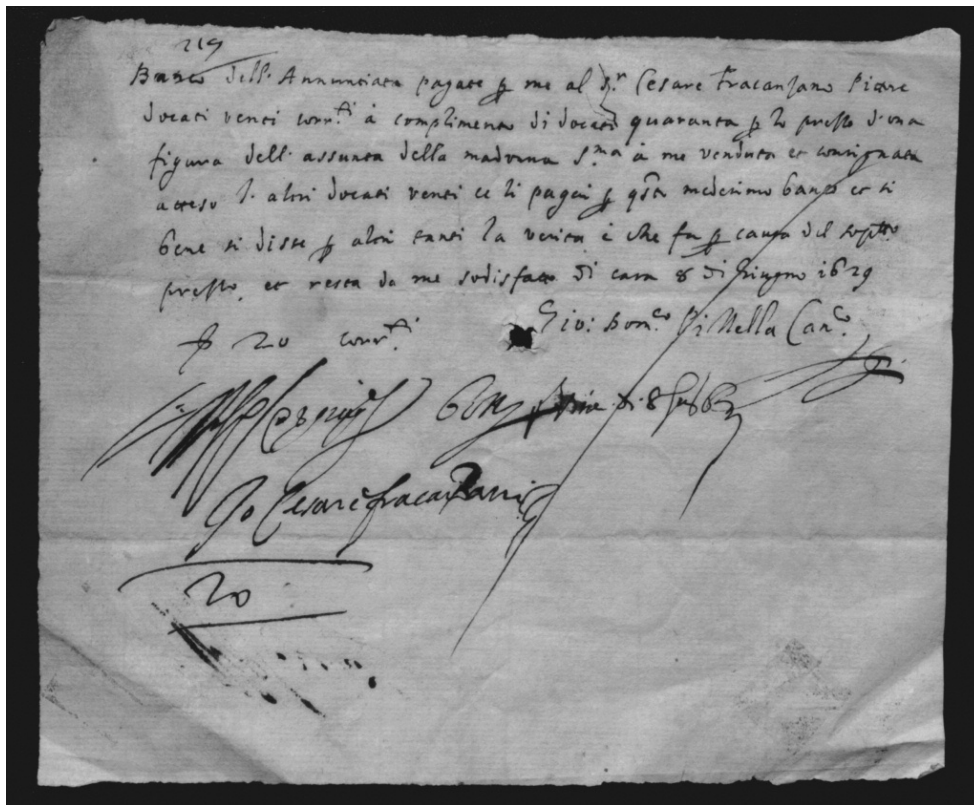 219
Banco dell'Annunciata pagate p me al Sr. Cesare Fracanzano Pittore
docati venti corr.ti à complimento di docati quaranta p lo prezzo d'una
figura dell'assunta della madonna S.ma à me venduta et consignata
atteso l'altri docati venti ce li pagai p qsto medesimo banco et si
bene si disse p altri tanti la verita è che fu p causa del sop.tto
prezzo, et resta da me sodisfatto di casa 8 di Giugno 1629
20 corr.ti Gio: Dom.co Di Nella Can.co
di 8
Io Cesare fracanzani
20